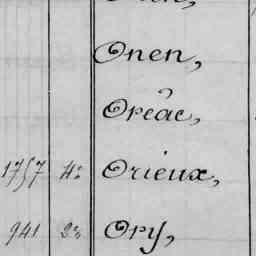 Onen,
Opéac,
1757 4° Orieux,
941 2° Ory,